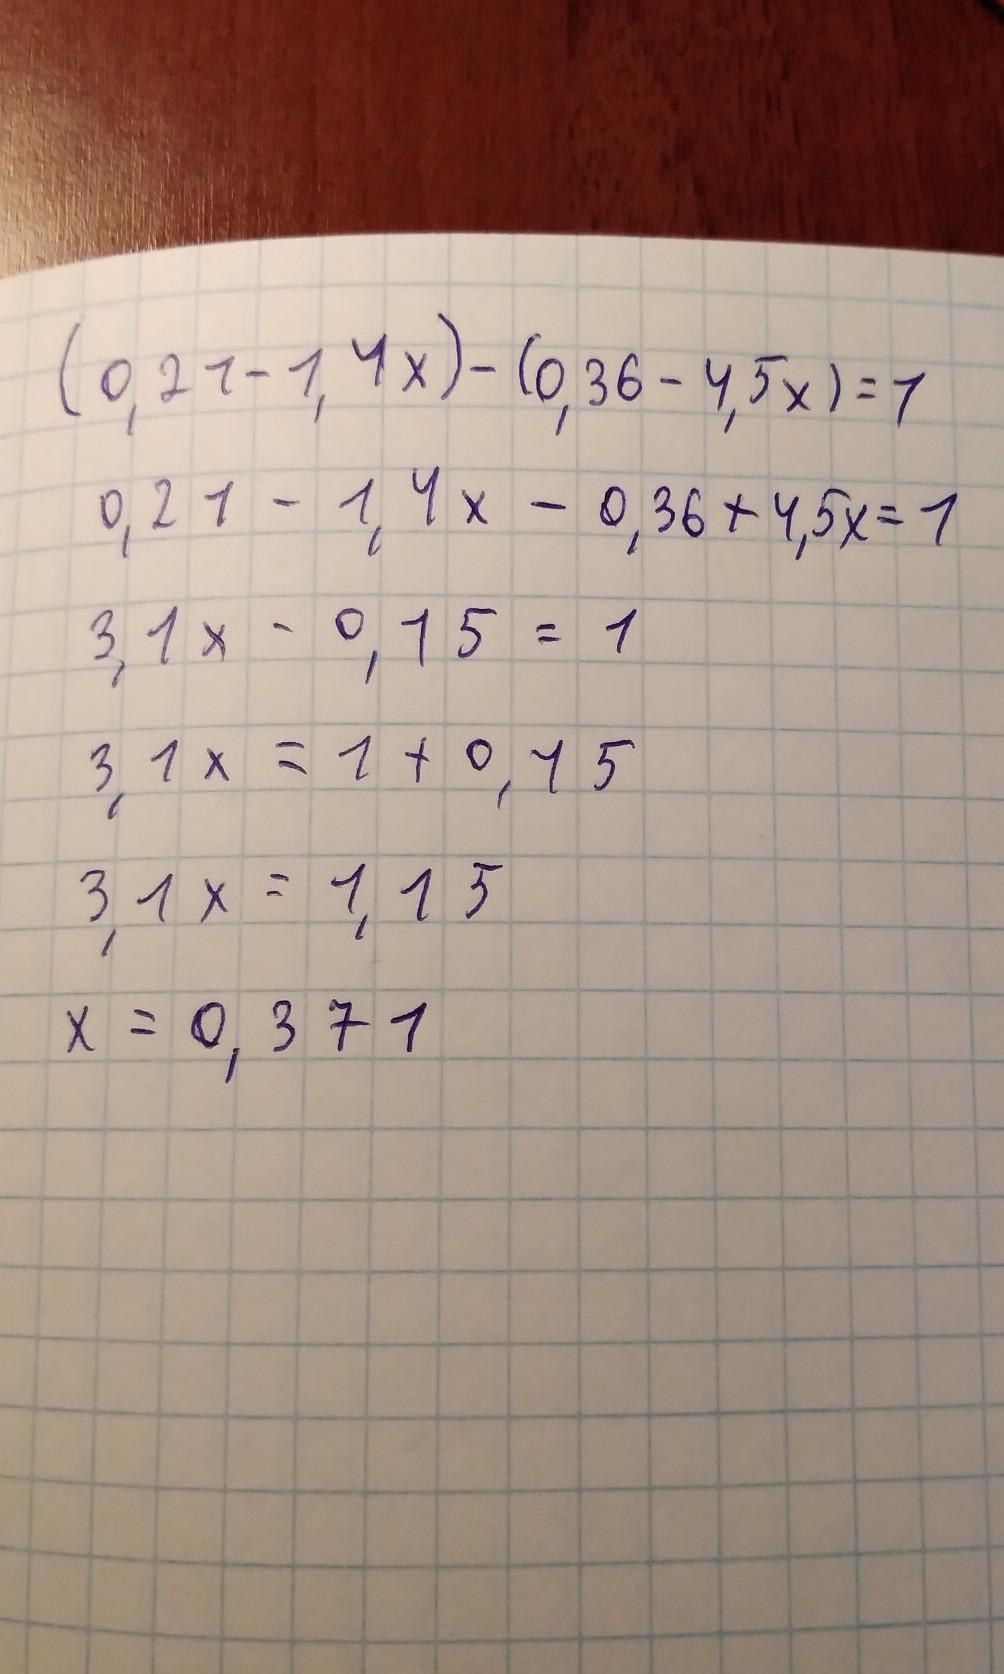 (0,21-1,4x)-(0,36-4,5x)=1
0,21-1,4x-0,36+4,5x=1
3,1x-0,15=1
3,1x=1+0,15
3,1x=1,15
x=0,371